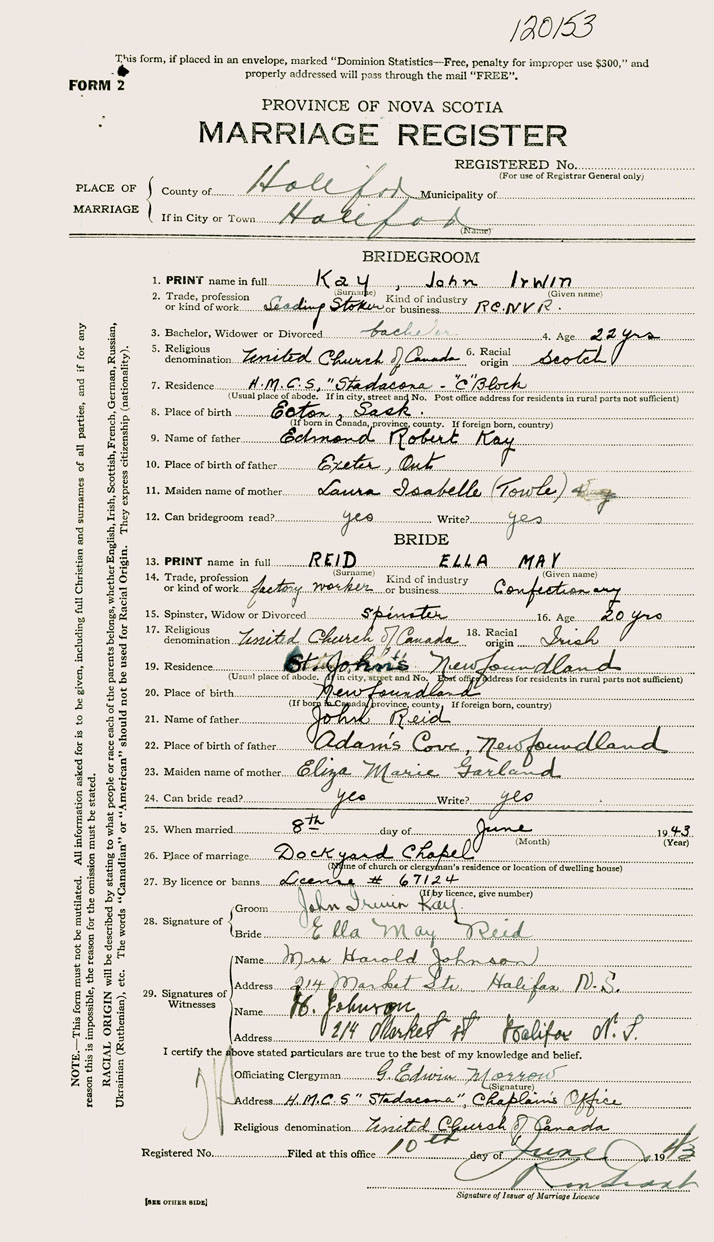 120153
This form, if placed in an envelope, marked "Dominion Statistics—Free, penalty for improper use $300," and
properly addressed will pass through the mail "FREE".
FORM 2
PROVINCE OF NOVA SCOTIA
MARRIAGE REGISTER
REGISTERED No.
(For use of Registrar General only)
PLACE OF MARRIAGE
County of Halifax Municipality of
If in City or Town Halifax
(Name)
BRIDEGROOM
1. PRINT name in full Kay, John Irwin
(Surname) (Given name)
2. Trade, profession or kind of work Leading Stoker Kind of industry or business R.C.N.V.R.
3. Bachelor, Widower or Divorced bachelor 4. Age 22 yrs
5. Religious denomination United Church of Canada 6. Racial origin Scotch
7. Residence H.M.C.S, "Stadacona - "C" Block
(Usual place of abode. If in city, street and No. Post office address for residents in rural parts not sufficient)
8. Place of birth Ecton, Sask.
(If born in Canada, province, county. If foreign born, country)
9. Name of father Edmond Robert Kay
10. Place of birth of father Exeter, Ont
11. Maiden name of mother Laura Isabelle (Towle)
12. Can bridegroom read? yes Write? yes
BRIDE
13. PRINT name in full REID ELLA MAY
(Surname) (Given name)
14. Trade, profession or kind of work factory worker Kind of industry or business Confectionary
15. Spinster, Widow or Divorced spinster 16. Age 20 yrs
17. Religious denomination United Church of Canada 18. Racial origin Irish
19. Residence St. John's Newfoundland
(Usual place of abode. If in city, street and No. Post office address for residents in rural parts not sufficient)
20. Place of birth Newfoundland
(If born in Canada, province, county If foreign born, country)
21. Name of father John Reid
22. Place of birth of father Adam's Cove, Newfoundland
23. Maiden name of mother Eliza Marie Garland
24. Can bride read? yes Write? yes
25. When married 8th day of June 1943
(Month) (Year)
26. Place of marriage Dockyard Chapel
(Name of church or clergyman's residence or location of dwelling house)
27. By licence or banns License # 67124
(If by licence, give number)
28. Signature of
Groom John Irwin Kay
Bride Ella May Reid
29. Signatures of Witnesses
Name Mrs Harold Johnson
Address 214 Market Str Halifax N.S.
Name H. Johnson
Address 214 Market st Halifax N.S.
I certify the above stated particulars are true to the best of my knowledge and belief.
Officiating Clergyman G. Edwin Morrow
(Signature)
Address H.M.C.S "Stadacona", Chaplain's Office
Religious denomination United Church of Canada
Registered No. Filed at this office 10th day of June 1943
Signature of Issuer of Marriage Licence
[SEE OTHER SIDE]
NOTE.—This form must not be mutilated. All information asked for is to be given, including full Christian and surnames of all parties, and if for any
reason this is impossible, the reason for the omission must be stated.
RACIAL ORIGIN will be described by stating to what people or race each of the parents belongs, whether English, Irish, Scottish, French, German, Russian,
Ukrainian (Ruthenian), etc. The words "Canadian" or "American" should not be used for Racial Origin. They express citizenship (nationality).